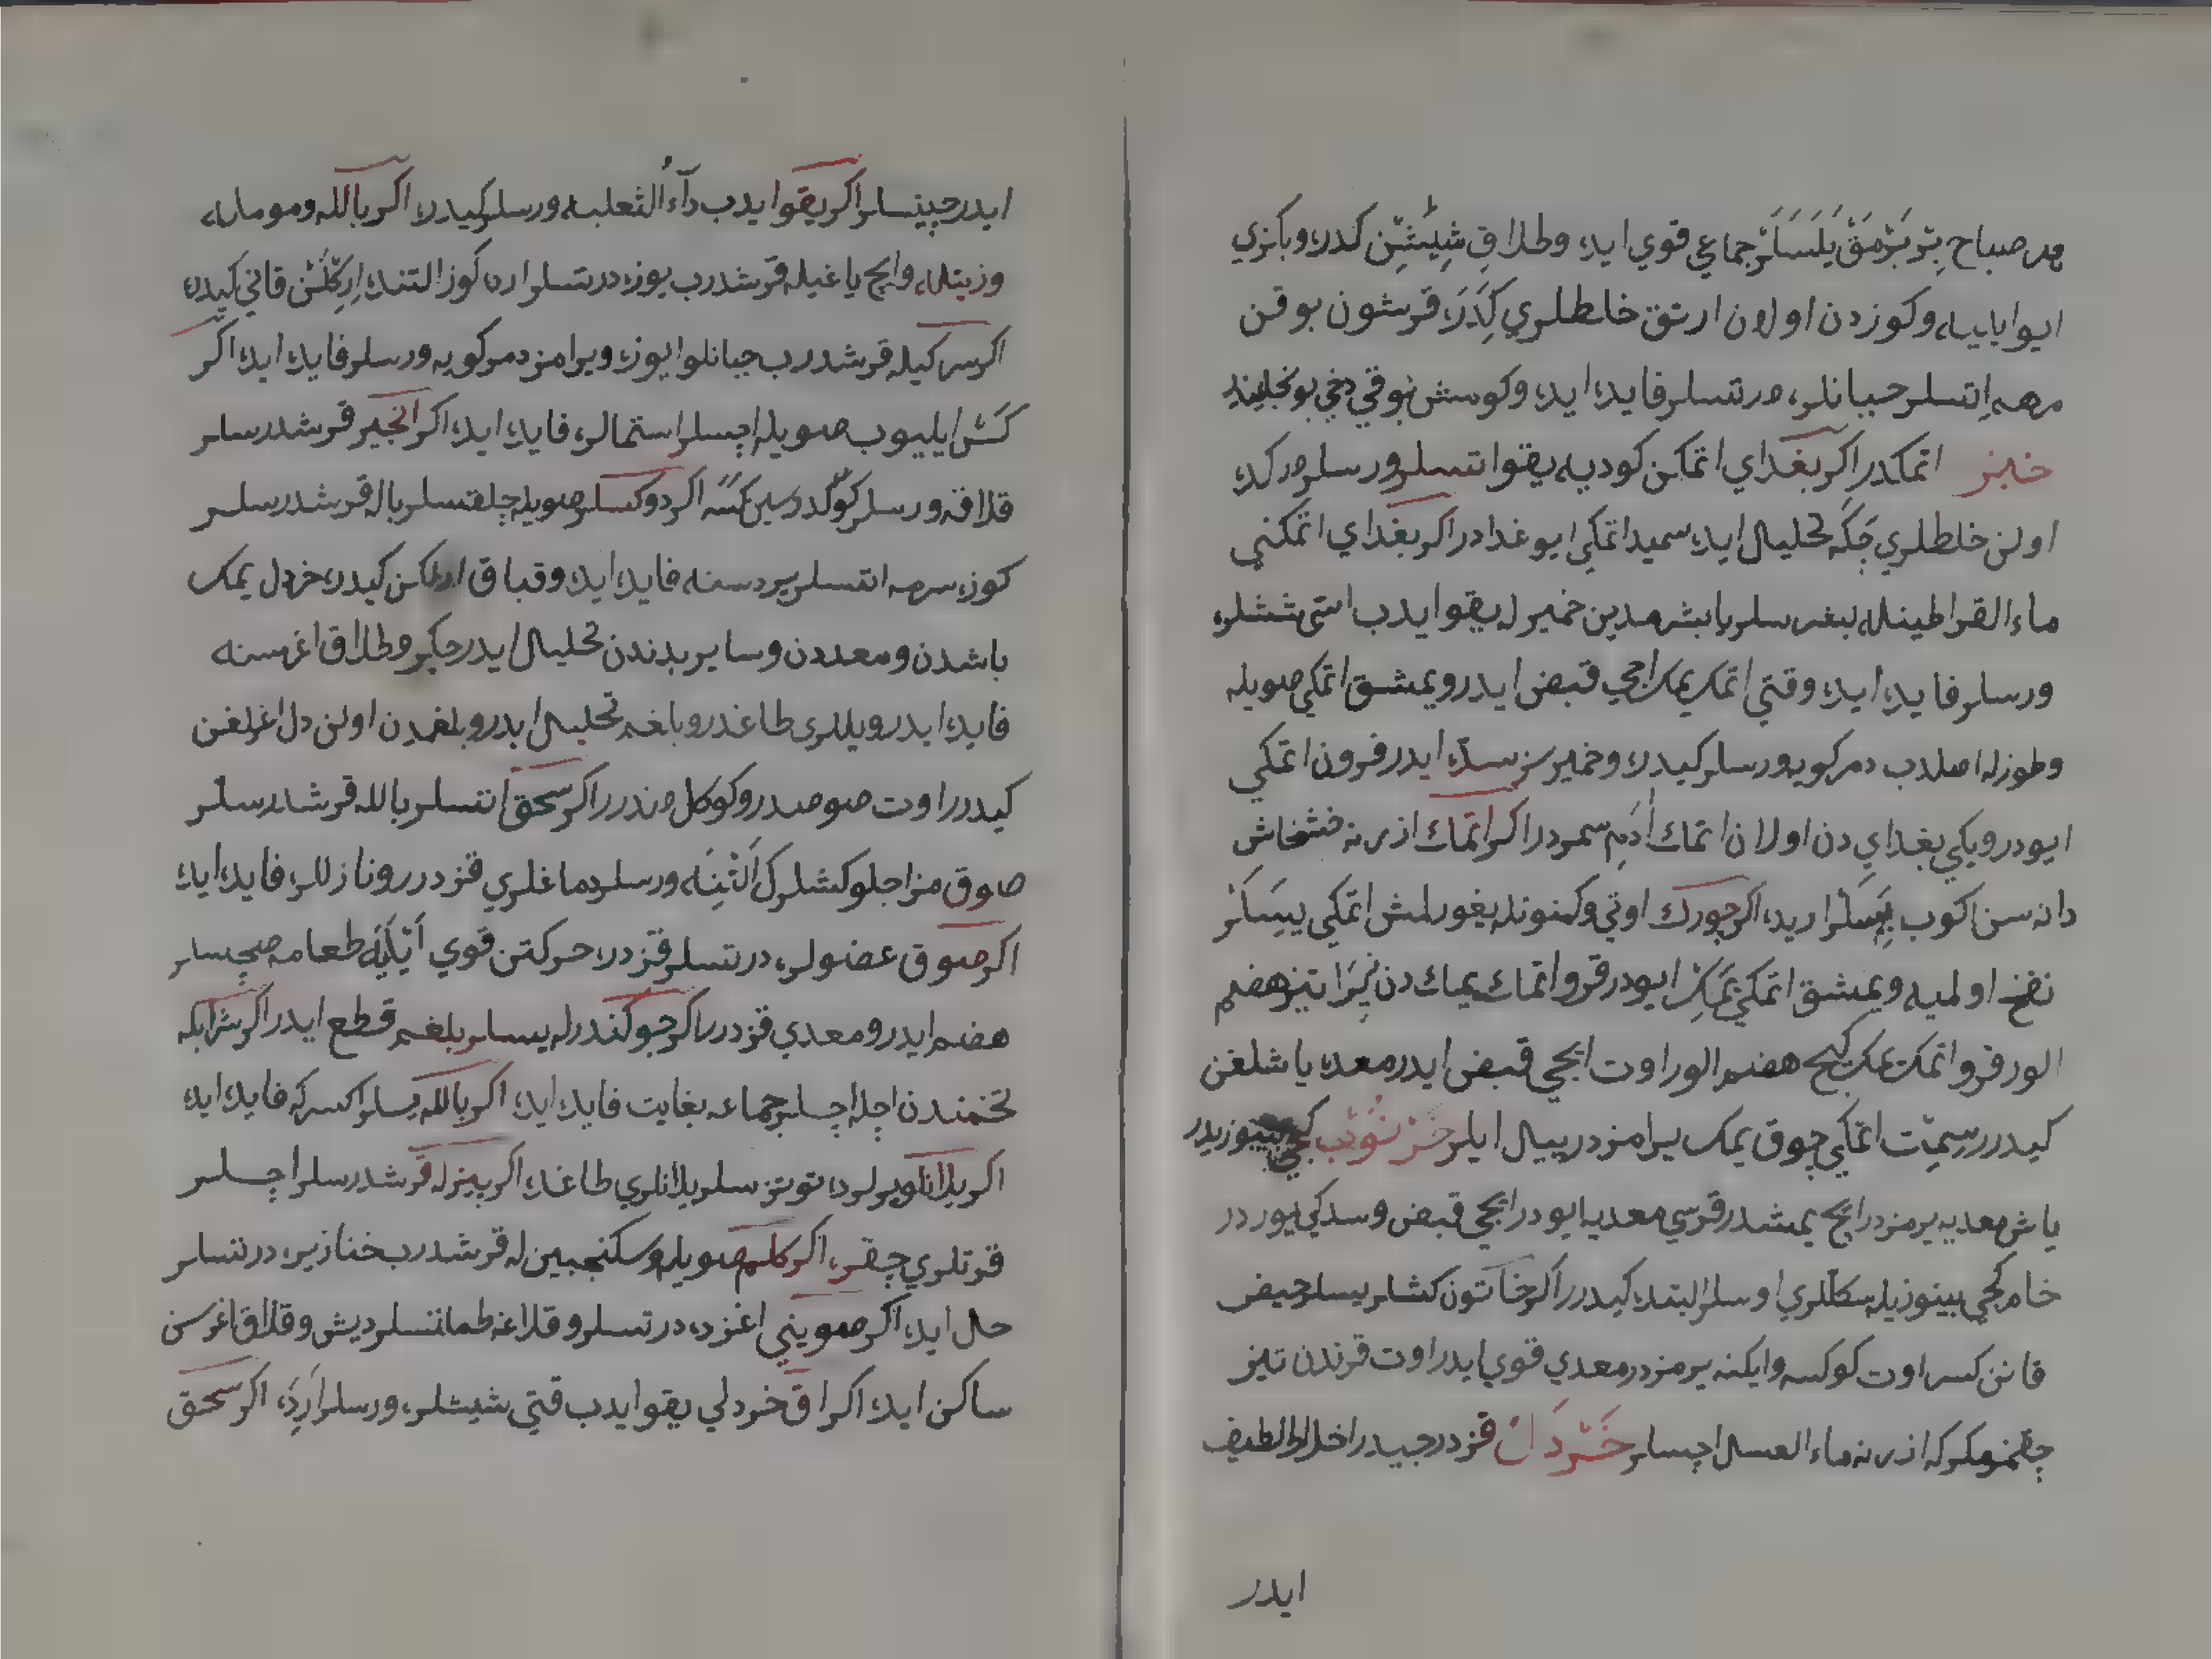 هر صباح بِر بَرْمَقْ يَلَسَلَرْ جماعي قوي ايده وطلاق شِيشِنْ كدره وبكزي
ايو ايليه وكوزدن اولان ارتق خلطلري كِدَرَ قرشون بوقن
مرهم اتسلر جبانلره درتسلر فايده ايده وكومش بوقي دخي بونجليند
خبز اتمكدر اكر بغداي اتمكن كوديه يقو اتسلر ورسلر در كده
اولن خلطلري چكه تحليل ايده سميد اتمكي ايو غدادر اكر بغداي اتمكني
ماء القراطينله يغرسلر يا بشرمدين خميرله يقو ايدب استي ششلره
ورسلر فايده ايده وقتي اتمك يمك اچي قبض ايدر ويمشق اتمكي صويله
وطوزله اصلدب دمركويه ورسلر كيدره وخميرسز سدّه ايدر فرون اتمكي
ايودر ويكي بغداي دن اولان اتمك أدمي سمردر اكر اتمك ازرنه خشخاش
دانه سن اكوب يِيسَلَرْ اريده اكر چورك اوتي وكمنوتله يغورلمش اتمكي ييسَلَرْ
نفخ اولميه ويمشق اتمكي يَمَكْ ايودر قرو اتمك يمك دن تيز هضم
الور قرو اتمك يمك كيج هضم الور اوت اچي قبض ايدر معده ياشلغن
كيدرر سميت اتمكي چوق يمك يرامزدر ييل ايلر خرنوب كچي بينوزيدر
ياش معديه يرمزدر اچ يمشدر قرسي معديه ايودر اچي قبض وسدكي يوردر
خام كچي بينوزيله سكللري اوسلر البتده كيدرر اكر خاتون كشلر ييسلر حيض
قانن كسر اوت كوكسه وايكنه يرمزدر معدي قوي ايدر اوت قرندن تيز
چقمز مكركه ازرنه ماء العسل اچسلر خردل قزدرجيدر اخلاط لطيف
ايدر
ايدر چينسلر اكر يقو ايدب داءُ الثعلبه ورسلر كيدره اكر بالله ومومله
وزيتله وايچ ياغيله قرشدرب يوزه درتسلر ارده كوز التنده اركلش قاني كيدره
اكر سركيله قرشدرب جبانلو ايوزه ويرامز دمركويه ورسلر فايده ايده اكر
كَشْ ايليوب صويله اچسلر استمالره فايده ايده اكر انجير قرشدرسلر
قلاقه ورسلر كوكدوسين كسه اكر دوكسلر صويله چلقسلر باله قرشدرسلر
كوزه سرمه اتسلر پرده سنه فايده ايده وقباق ارلكن كيدره خردل يمك
باشدن ومعددن وساير بدندن تحليل ايدر جكر وطلاق اغرسنه
فايده ايدر ويللري طاغدر وبلغمه تحليل ايدر وبلغمدن اولن دل اغرلغن
كيدرر اوت صوصدر وكوكل دندرر اكر سحق اتسلر بالله قرشدرسلر
صوق مزاجلو كشلرك اَلْنِنَه ورسلر دماغلري قزدرر ونازللره فايده ايده
اكر صوق عضولره درتسلر قزدره حركتن قوي اَيْلَيَه طعامه صچسلر
هضم ايدر ومعدي قزدرر اكر چوكندرله ييسلر بلغم قطع ايدر اكر شرابكه
تخمندن اچله اچسلر جماعه بغايت فايده ايده اكر بالله ييسلر اكسركه فايده ايده
اكر يلانلو يرلرده توتزسلر يلانلري طاغده اكر پينرله قرشدرسلر اچسلر
قرتلري چقره اكر كلم صويله وسكنجبين له قرشدرب خنازيره درتسلر
حل ايده اكر صويني اغزده درتسلر وقلاغه طمانتسلر ديش وقلاق اغرسن
ساكن ايده اكر اق خردلي يقو ايدب قتي شيشلره ورسلر اَرِدَ اكر سحق